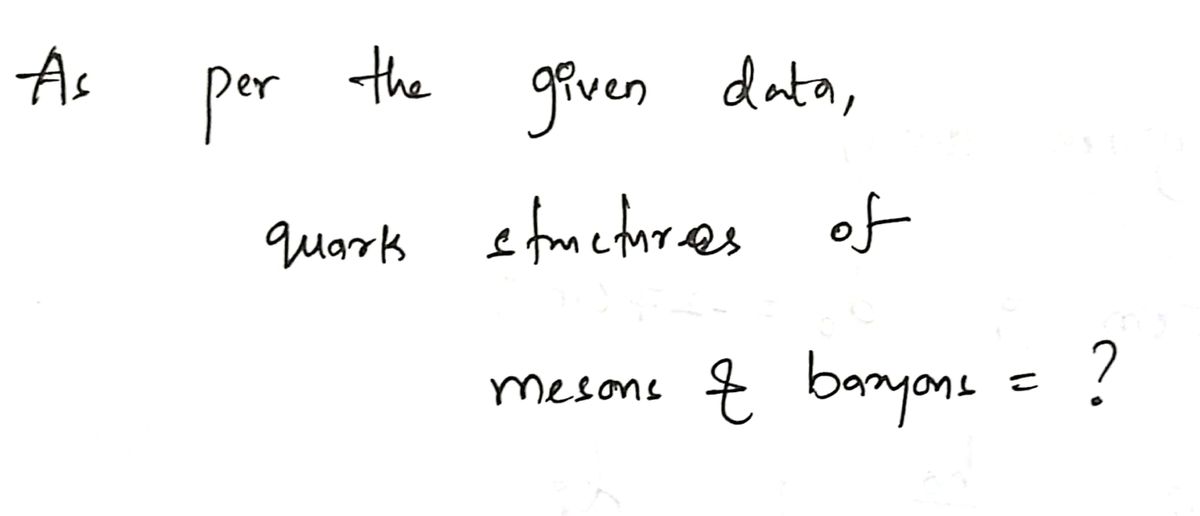 As per the given data,
quark structures of
mesons & baryons = ?